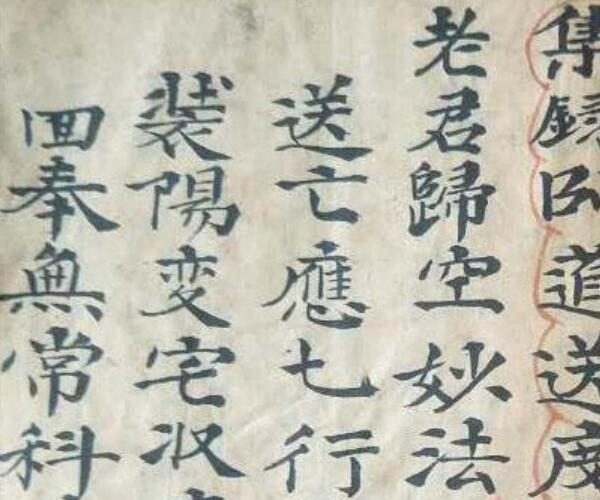 集錄 道送度
老君歸空妙法
送亡應七行
裝陽変宅収
回奉無常科